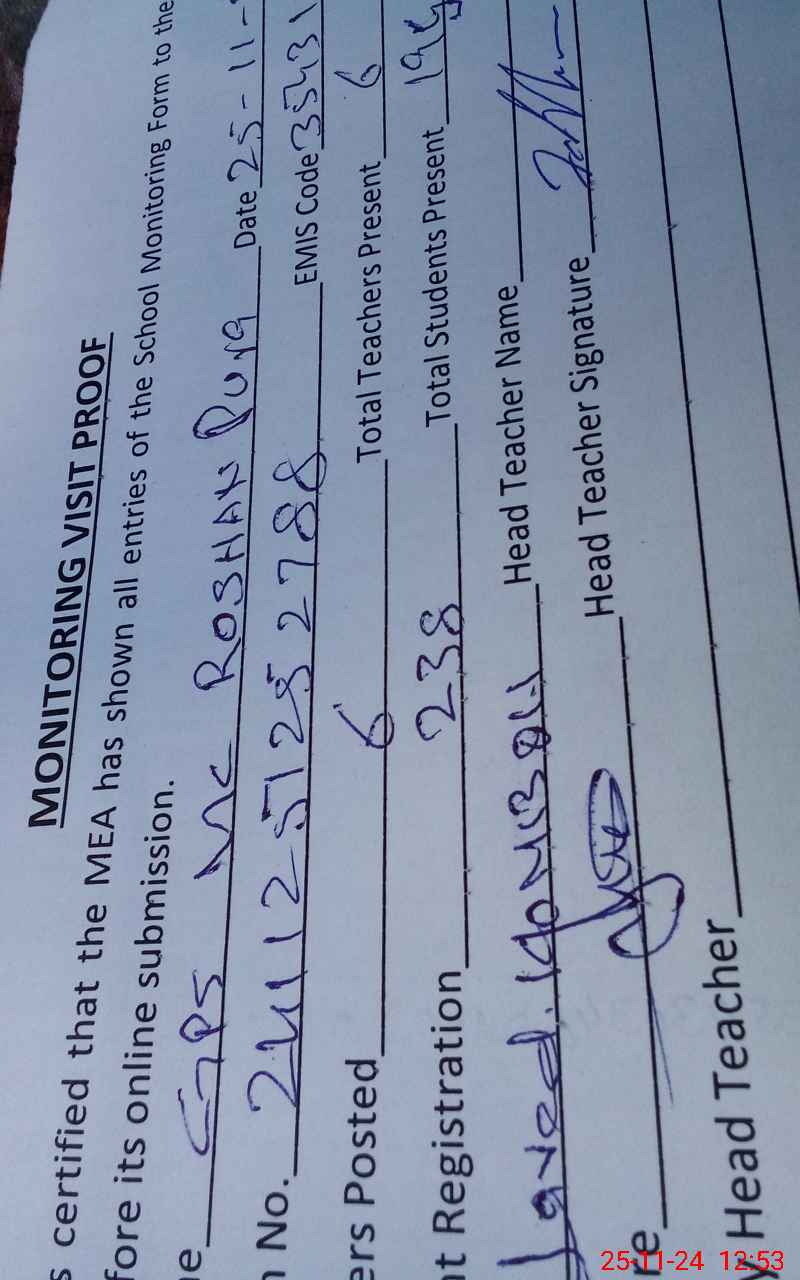 MONITORING VISIT PROOF
s certified that the MEA has shown all entries of the School Monitoring Form to the
fore its online submission.
e GPS MC ROSHAN Pura Date 25-11-
n No. 241125125 2788 EMIS Code 35431
ers Posted 6 Total Teachers Present 6
nt Registration 238 Total Students Present 19
Javed. Head Teacher Name
re Head Teacher Signature
y Head Teacher
25-11-24 12:53